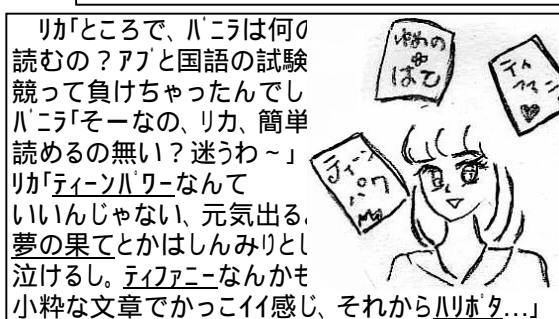 リカ「ところで、バニラは何の
読むの？アブと国語の試験
競って負けちゃったんでし
バニラ「そーなの、リカ、簡単
読めるの無い？迷うわ～」
リカ「ティーンパワーなんて
いいんじゃない、元気出る
夢の果てとかはしんみりとし
泣けるし。ティファニーなんかも
小粋な文章でかっこイイ感じ、それからハリポタ...」
ゆめの
はて
ティ
ファニ
ティーン
パワ